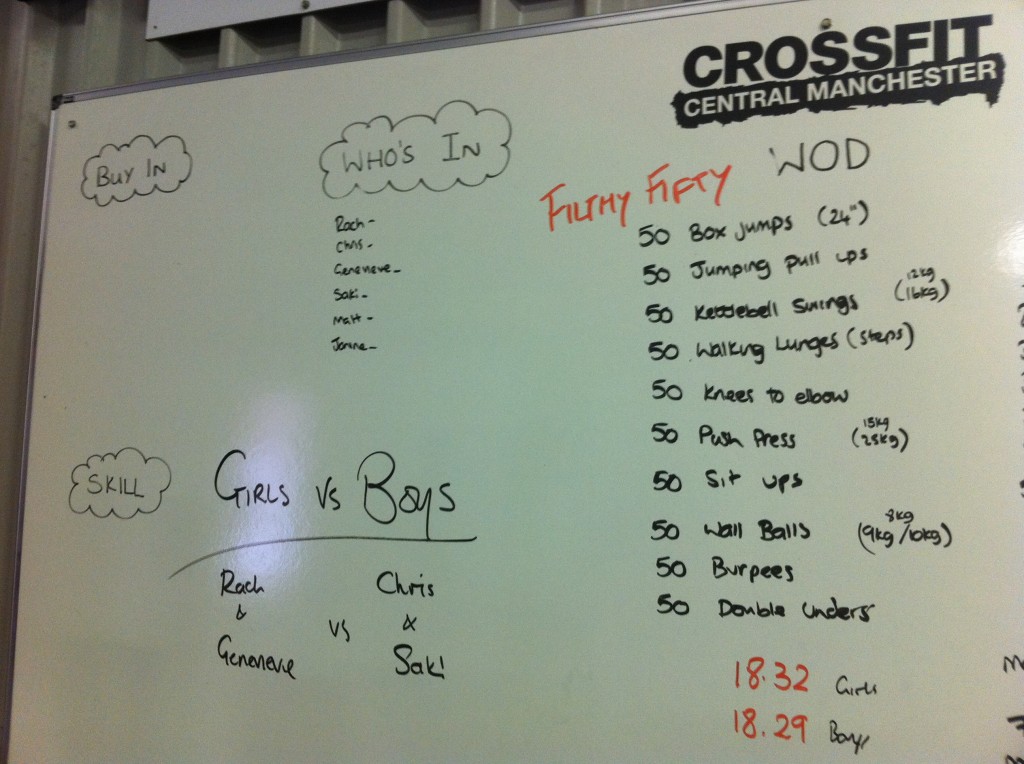 CROSSFIT
CENTRAL MANCHESTER
BUY IN
WHO'S IN
Rach -
Chris -
Genevieve -
Saki -
Matt -
Janine -
WOD
FILTHY FIFTY
50 Box jumps (24")
50 Jumping pull ups
50 Kettlebell Swings 12kg (16kg)
50 Walking Lunges (steps)
50 Knees to elbow
50 Push Press 15kg (25kg)
50 Sit ups
50 Wall Balls 8kg (9kg/10kg)
50 Burpees
50 Double Unders
18.32 Girls
18.29 Boys
SKILL
GIRLS VS BOYS
Rach & Genevieve
VS
Chris & Saki